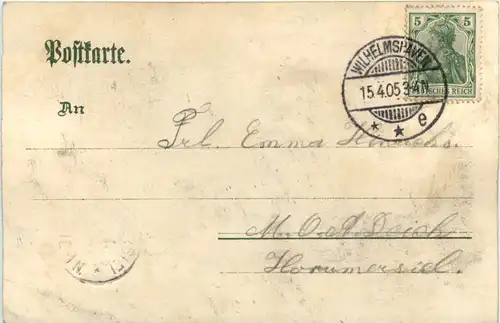 Postkarte.
5 5
DEUTSCHES REICH
WILHELMSHAVEN
15.4.05 3-4N
* * e
An
Frl. Emma Hinrichs.
M. O. A. Deich
Horumersiel.